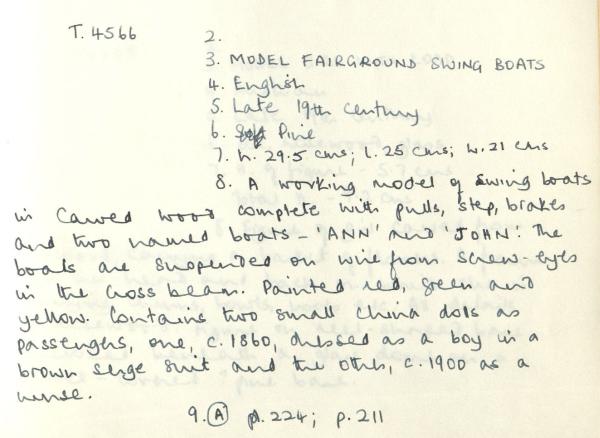 T. 4566 2.
3. MODEL FAIRGROUND SWING BOATS
4. English
5. Late 19th century
6. Pine
7. h. 29.5 cms; l. 25 cms; w. 21 cms
8. A working model of swing boats
in carved wood complete with pulls, step, brakes
and two named boats - 'ANN' and 'JOHN'. The
boats are suspended on wire from screw-eyes
in the cross beam. Painted red, green and
yellow. Contains two small china dolls as
passengers, one, c. 1860, dressed as a boy in a
brown serge suit and the other, c. 1900 as a
nurse.
9. (A) pl. 224; p. 211